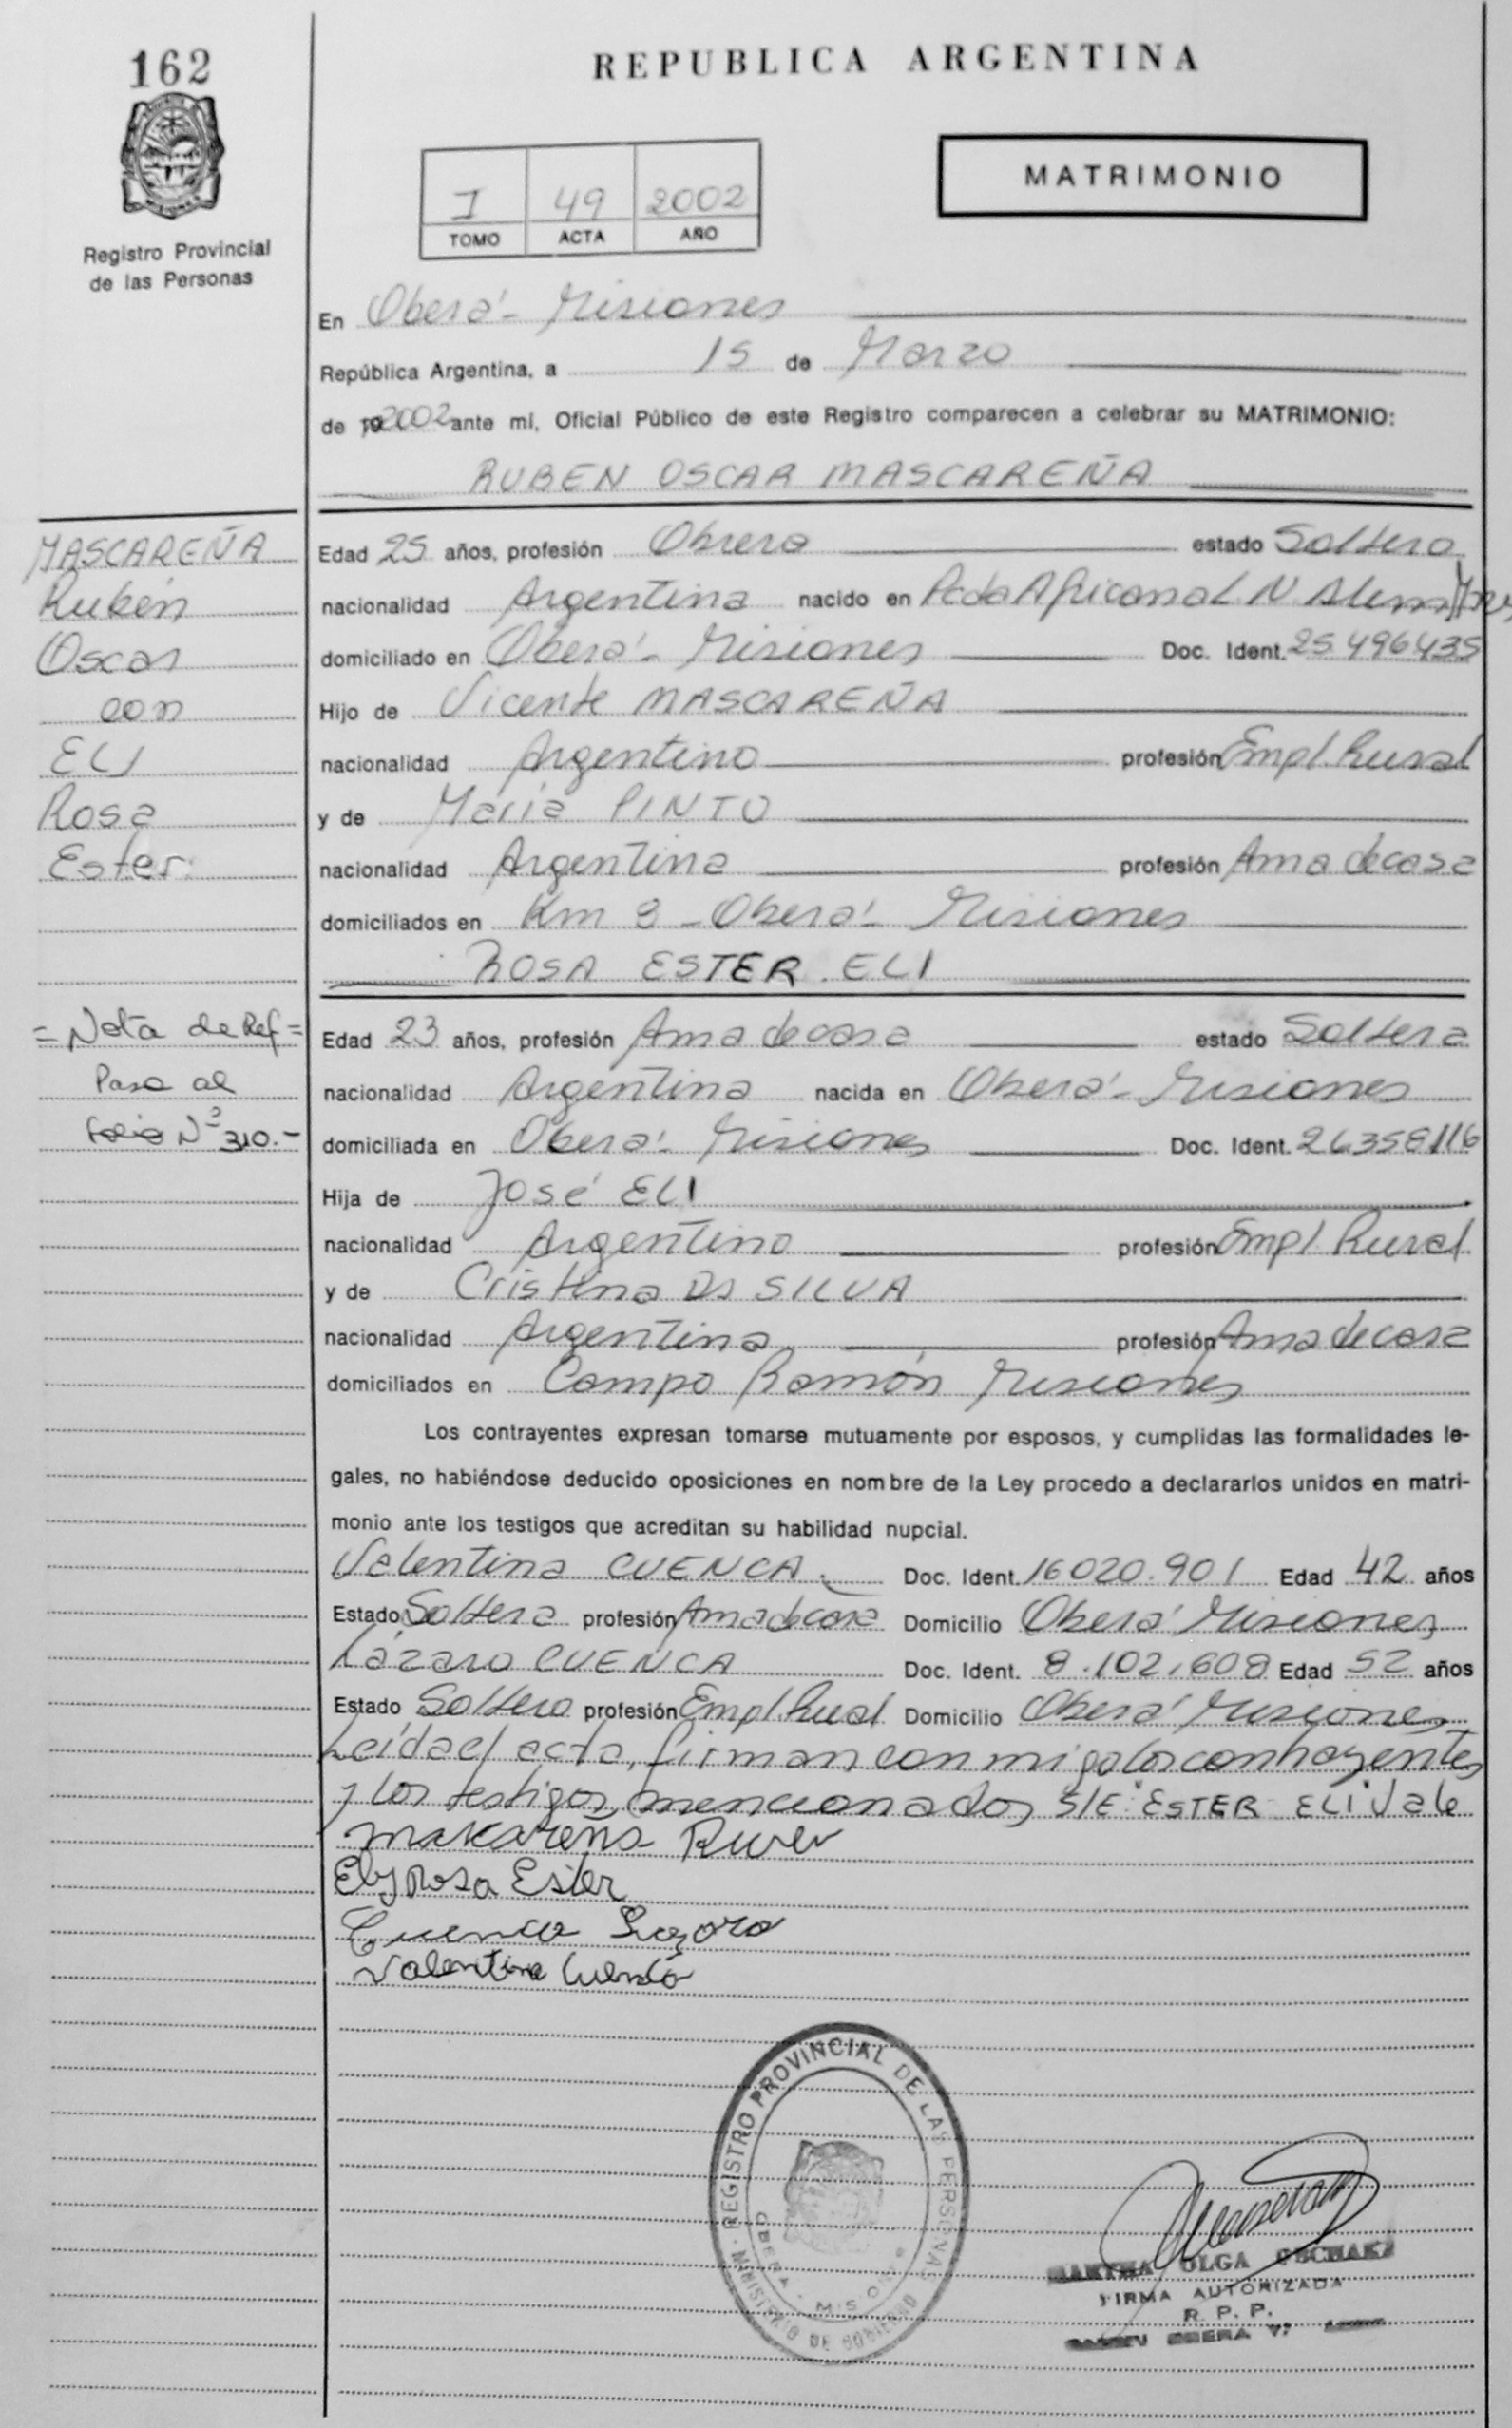 162
REPUBLICA ARGENTINA
MATRIMONIO
I 49 2002
TOMO ACTA AÑO
Registro Provincial
de las Personas
En Oberá - Misiones
República Argentina, a 15 de Marzo
de 2002 ante mí, Oficial Público de este Registro comparecen a celebrar su MATRIMONIO:
RUBEN OSCAR MASCAREÑA
MASCAREÑA
Rubén
Oscar
con
ELI
Rosa
Ester.
Edad 25 años, profesión Obrero estado Soltero
nacionalidad Argentina nacido en Pcda Africana L N Alem
domiciliado en Oberá - Misiones Doc. Ident. 25.496.435
Hijo de Vicente MASCAREÑA
nacionalidad Argentino profesión Empl. Rural
y de María PINTO
nacionalidad Argentina profesión Ama de casa
domiciliados en Km 8 - Oberá - Misiones
ROSA ESTER ELI
= Nota de Ref =
Pasa al
folio Nº 310.-
Edad 23 años, profesión Ama de casa estado Soltera
nacionalidad Argentina nacida en Oberá - Misiones
domiciliada en Oberá - Misiones Doc. Ident. 26358116
Hija de José ELI
nacionalidad Argentino profesión Empl. Rural
y de Cristina DA SILVA
nacionalidad Argentina profesión Ama de casa
domiciliados en Campo Ramón Misiones
Los contrayentes expresan tomarse mutuamente por esposos, y cumplidas las formalidades le-
gales, no habiéndose deducido oposiciones en nombre de la Ley procedo a declararlos unidos en matri-
monio ante los testigos que acreditan su habilidad nupcial.
Valentina CUENCA. Doc. Ident. 16020.901 Edad 42 años
Estado Soltera profesión Ama de casa Domicilio Oberá Misiones
Lázaro CUENCA Doc. Ident. 8.102.608 Edad 52 años
Estado Soltero profesión Empl. Rural Domicilio Oberá Misiones
Leída el acta, firman conmigo los contrayentes
y los testigos mencionados S/E: ESTER ELI Vale
Maskareña Ruven
Ely Rosa Ester
Cuenca Lazaro
Valentina Cuenca
REGISTRO PROVINCIAL DE LAS PERSONAS
MINISTERIO DE GOBIERNO
OBERA - MISIONES
MARTHA OLGA
FIRMA AUTORIZADA
R. P. P.
OBERA